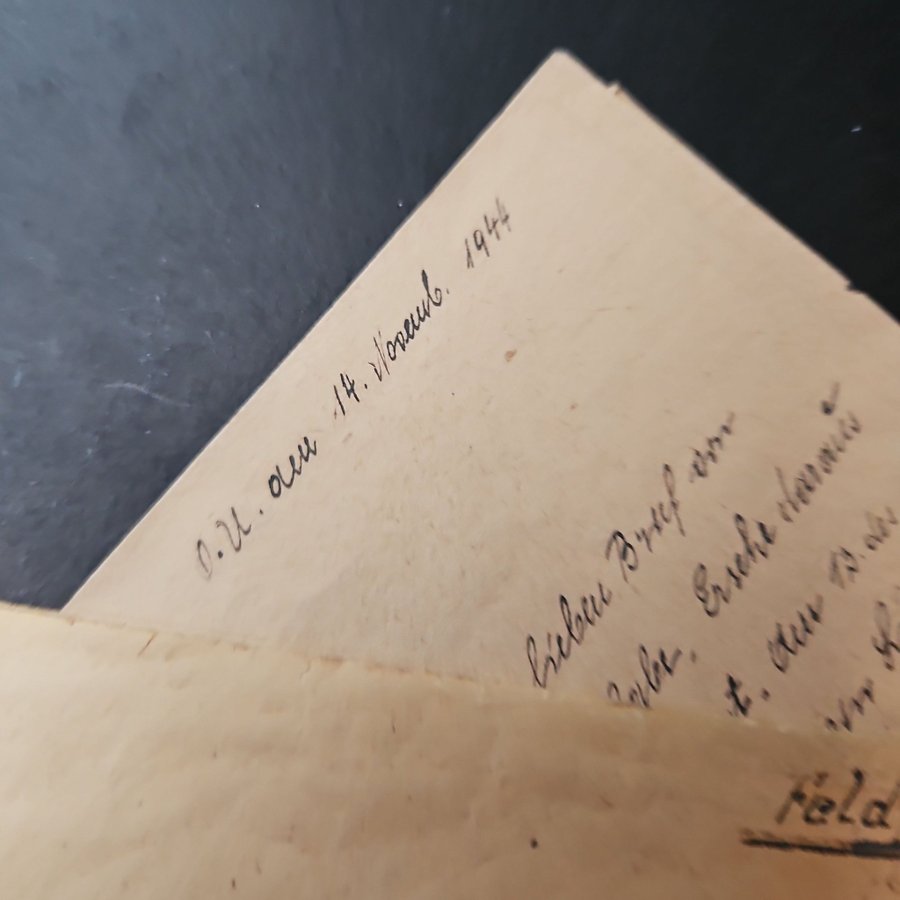 O.U. den 14. Novemb. 1944
lieben Brief vom
habe. Ersehe daraus
t. den 13. des
Feld